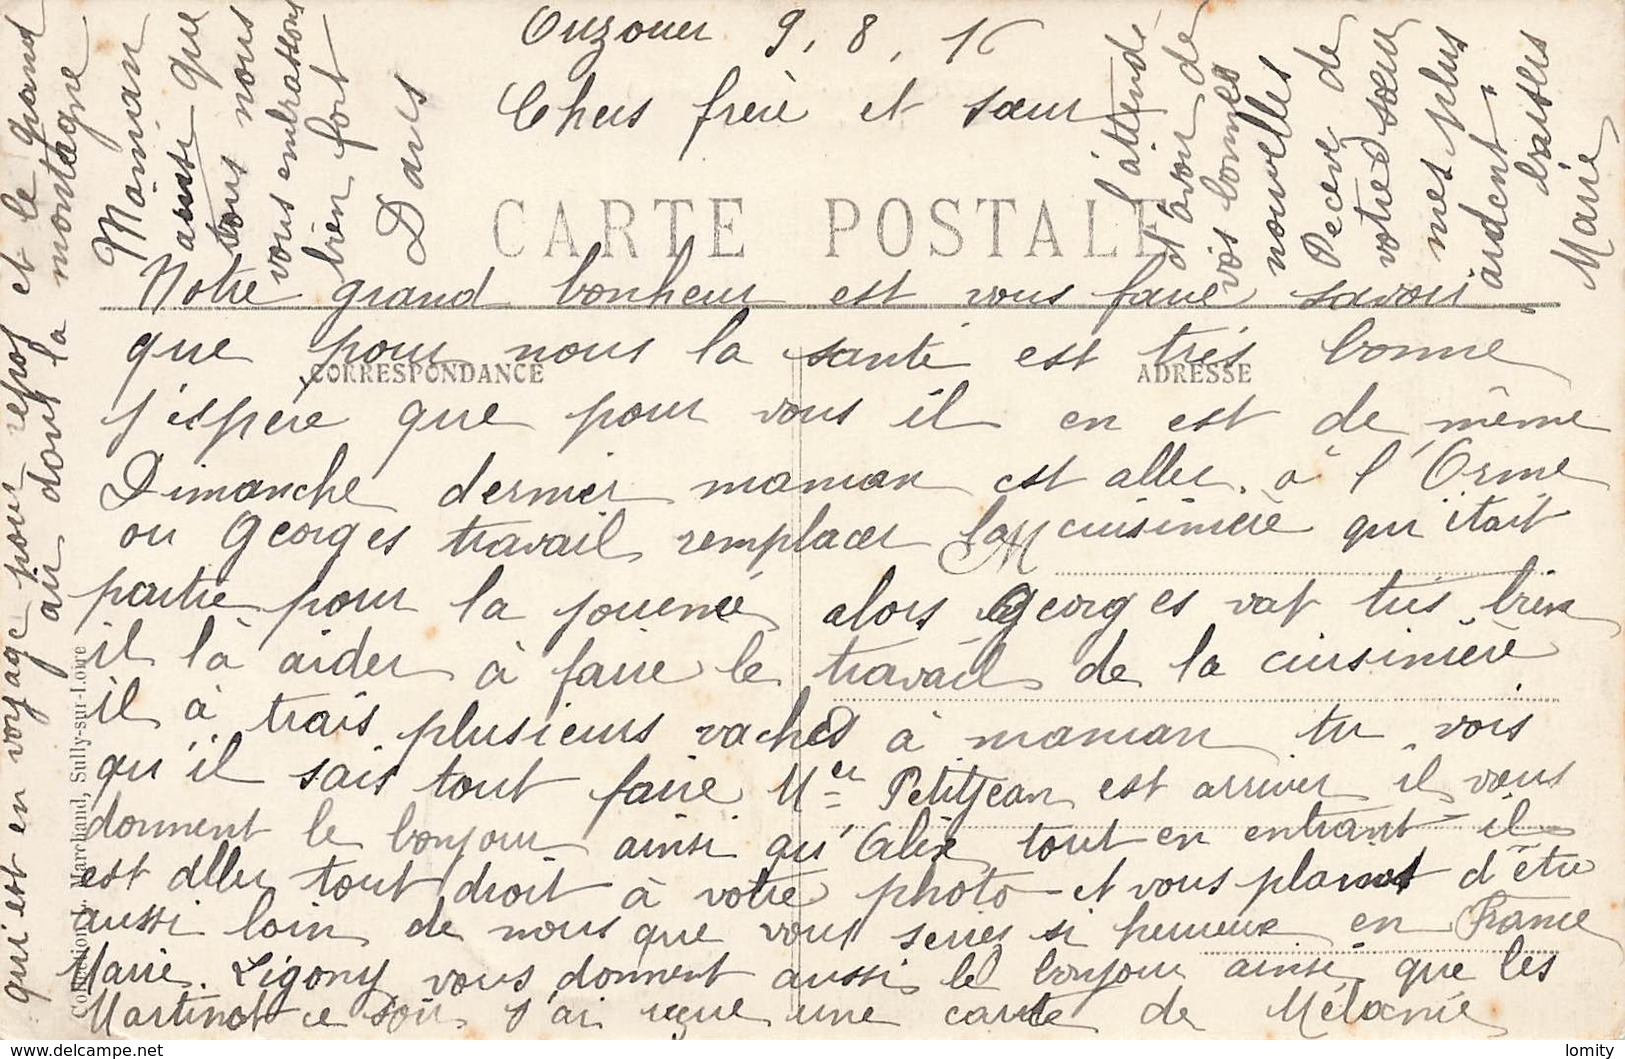 Ouzouer 9, 8, 16
Chers frère et sœur
CARTE POSTALE
Notre grand bonheur est vous faire savoir
que pour nous la santé est très bonne
CORRESPONDANCE
ADRESSE
j'espère que pour vous il en est de même
Dimanche dernier maman est aller à l'Orme
ou Georges travail remplacer la cuisinière qui était
M
partie pour la journeé alors Georges vat très bien
il là aider à faire le travail de la cuisinière
il à trais plusieurs vaches à maman tu vois
qu'il sais tout faire Mer Petitjean est arriver il vous
donnent le bonjour ainsi qu'Alix tout en entrant il
est aller tout droit à votre photo et vous plains d'être
aussi loin de nous que vous series si heureux en France
Marie Ligony vous donnent aussi le bonjour ainsi que les
Martinot ce soir j'ai reçue une carte de Mélanie
qui est en voyage pour repos et le grand
air dont la montagne
Maman
ainsi que
tous nous
vous embrassons
bien fort
Dans
l'attende
d'avoir de
vos bonnes
nouvelles
Recevé de
votre sœur
mes plus
ardent
baisers
Marie
Collection L. Marchand, Sully-sur-Loire
delcampe.net
lomity